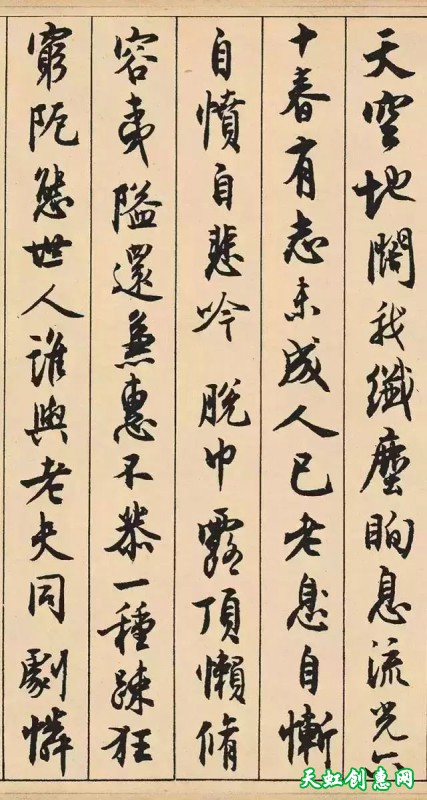 天空地闊我纖塵眴息流光六
十春有志未成人已老息自慚
自憤自悲吟 脫巾露頂懶脩
容夷隘還兼惠不恭一種踈狂
窮阨態世人誰與老夫同 劇憐
天虹创意网